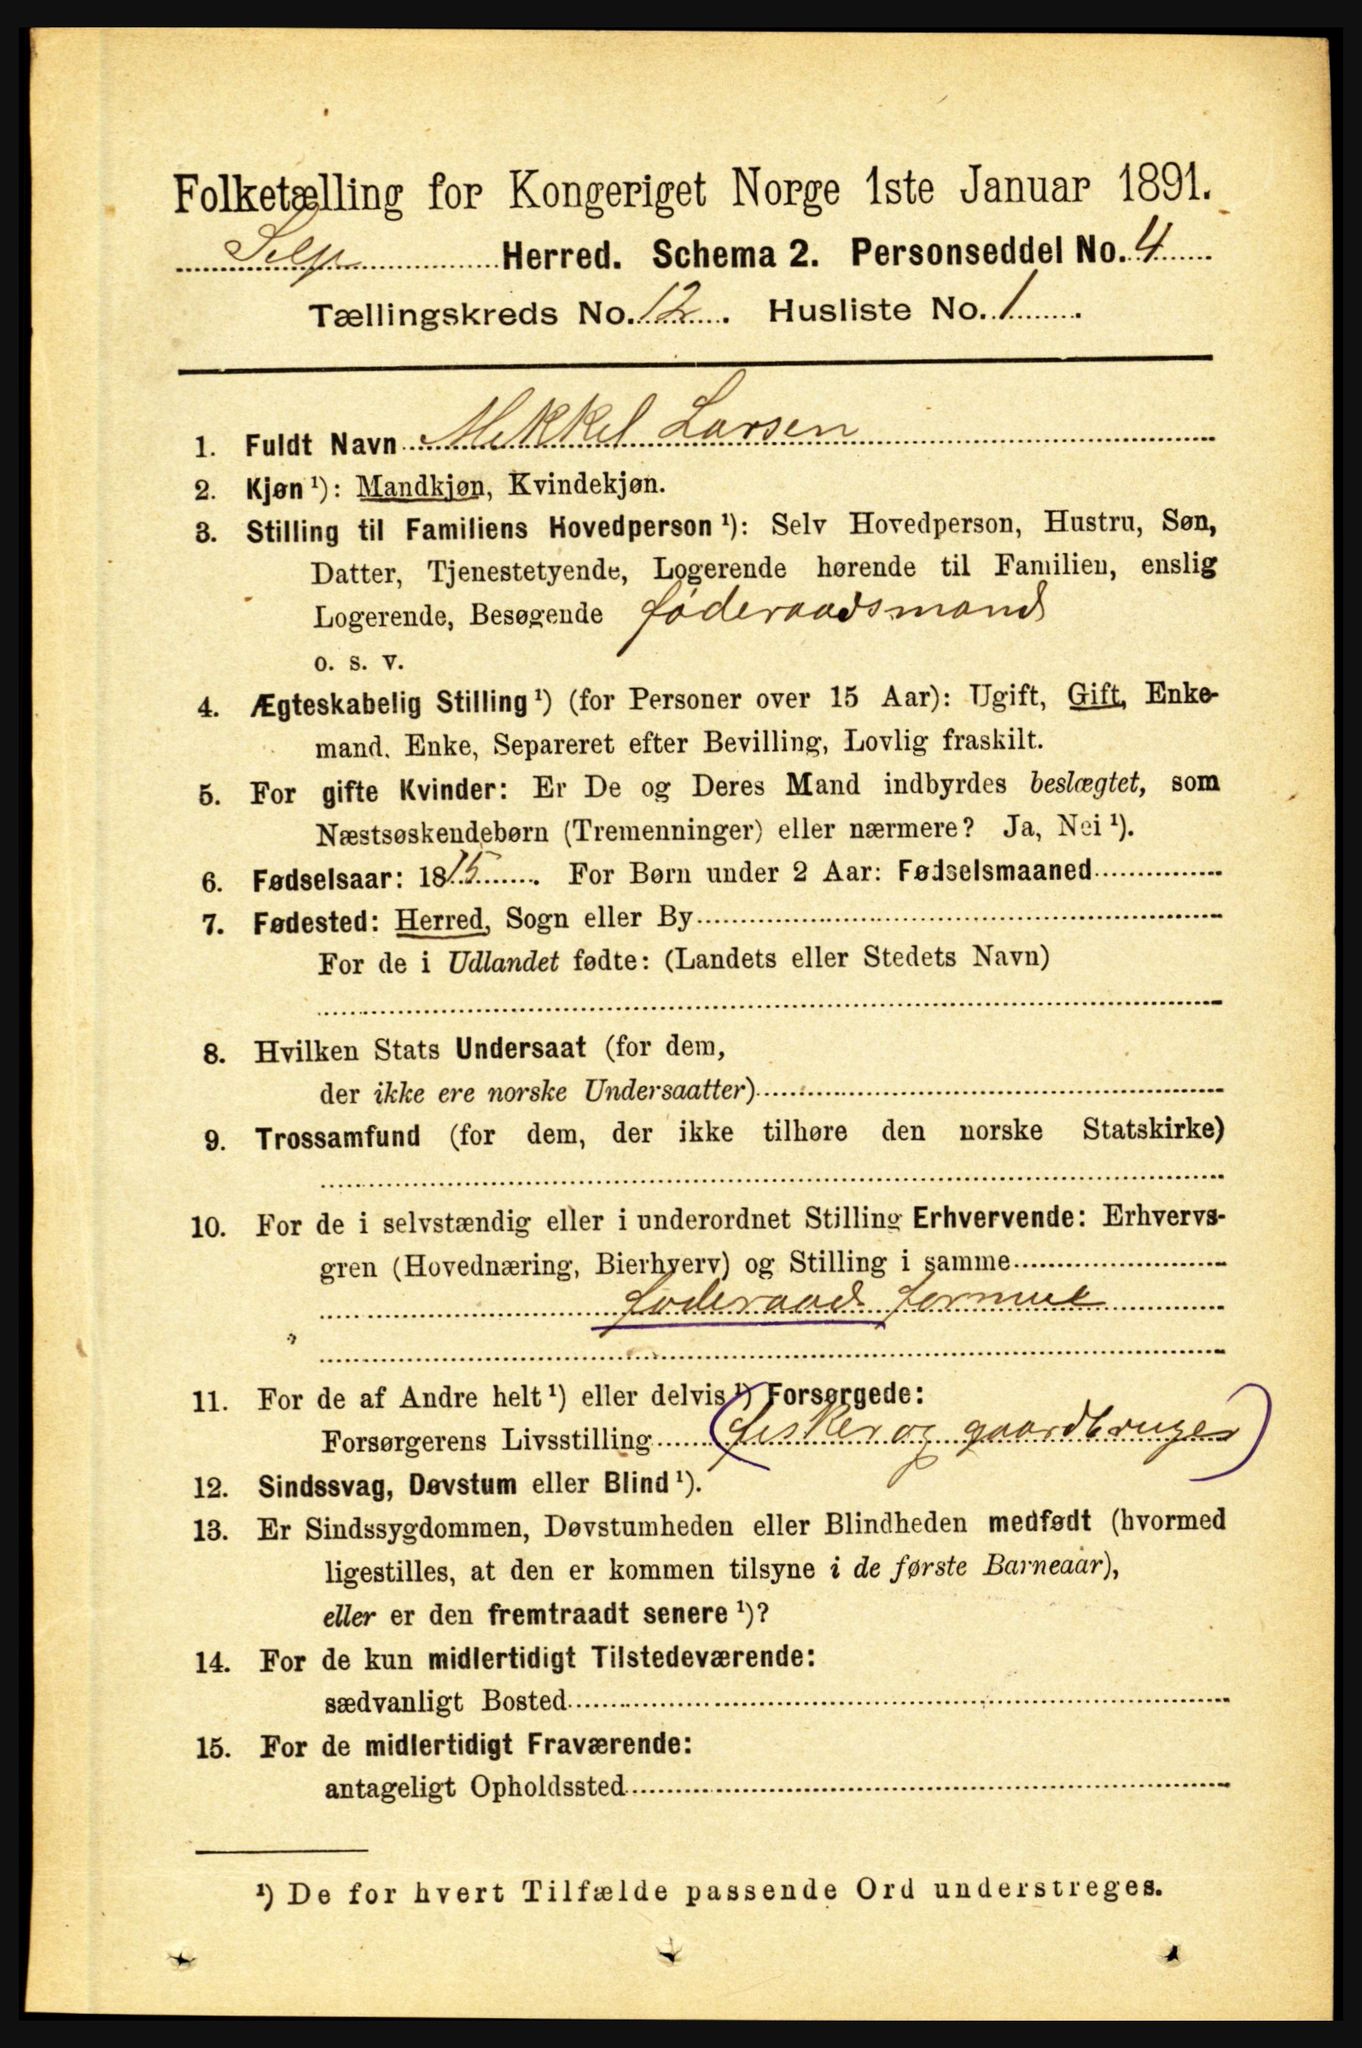 Folketælling for Kongeriget Norge 1ste Januar 1891.
Selje Herred. Schema 2. Personseddel No. 4
Tællingskreds No. 12. Husliste No. 1.
1. Fuldt Navn Mekkel Larsen
2. Kjøn ¹): Mandkjøn, Kvindekjøn.
3. Stilling til Familiens Hovedperson ¹): Selv Hovedperson, Hustru, Søn,
Datter, Tjenestetyende, Logerende hørende til Familien, enslig
Logerende, Besøgende føderaadsmand
o. s. v.
4. Ægteskabelig Stilling ¹) (for Personer over 15 Aar): Ugift, Gift, Enke-
mand, Enke, Separeret efter Bevilling, Lovlig fraskilt.
5. For gifte Kvinder: Er De og Deres Mand indbyrdes beslægtet, som
Næstsøskendebørn (Tremenninger) eller nærmere? Ja, Nei ¹).
6. Fødselsaar: 1815. For Børn under 2 Aar: Fødselsmaaned
7. Fødested: Herred, Sogn eller By
For de i Udlandet fødte: (Landets eller Stedets Navn)
8. Hvilken Stats Undersaat (for dem,
der ikke ere norske Undersaatter)
9. Trossamfund (for dem, der ikke tilhøre den norske Statskirke)
10. For de i selvstændig eller i underordnet Stilling Erhvervende: Erhvervs-
gren (Hovednæring, Bierhverv) og Stilling i samme
føderaad formue
11. For de af Andre helt ¹) eller delvis ¹) Forsørgede:
Forsørgerens Livsstilling (fisker og gaardbruger)
12. Sindssvag, Døvstum eller Blind ¹).
13. Er Sindssygdommen, Døvstumheden eller Blindheden medfødt (hvormed
ligestilles, at den er kommen tilsyne i de første Barneaar),
eller er den fremtraadt senere ¹)?
14. For de kun midlertidigt Tilstedeværende:
sædvanligt Bosted
15. For de midlertidigt Fraværende:
antageligt Opholdssted
¹) De for hvert Tilfælde passende Ord understreges.